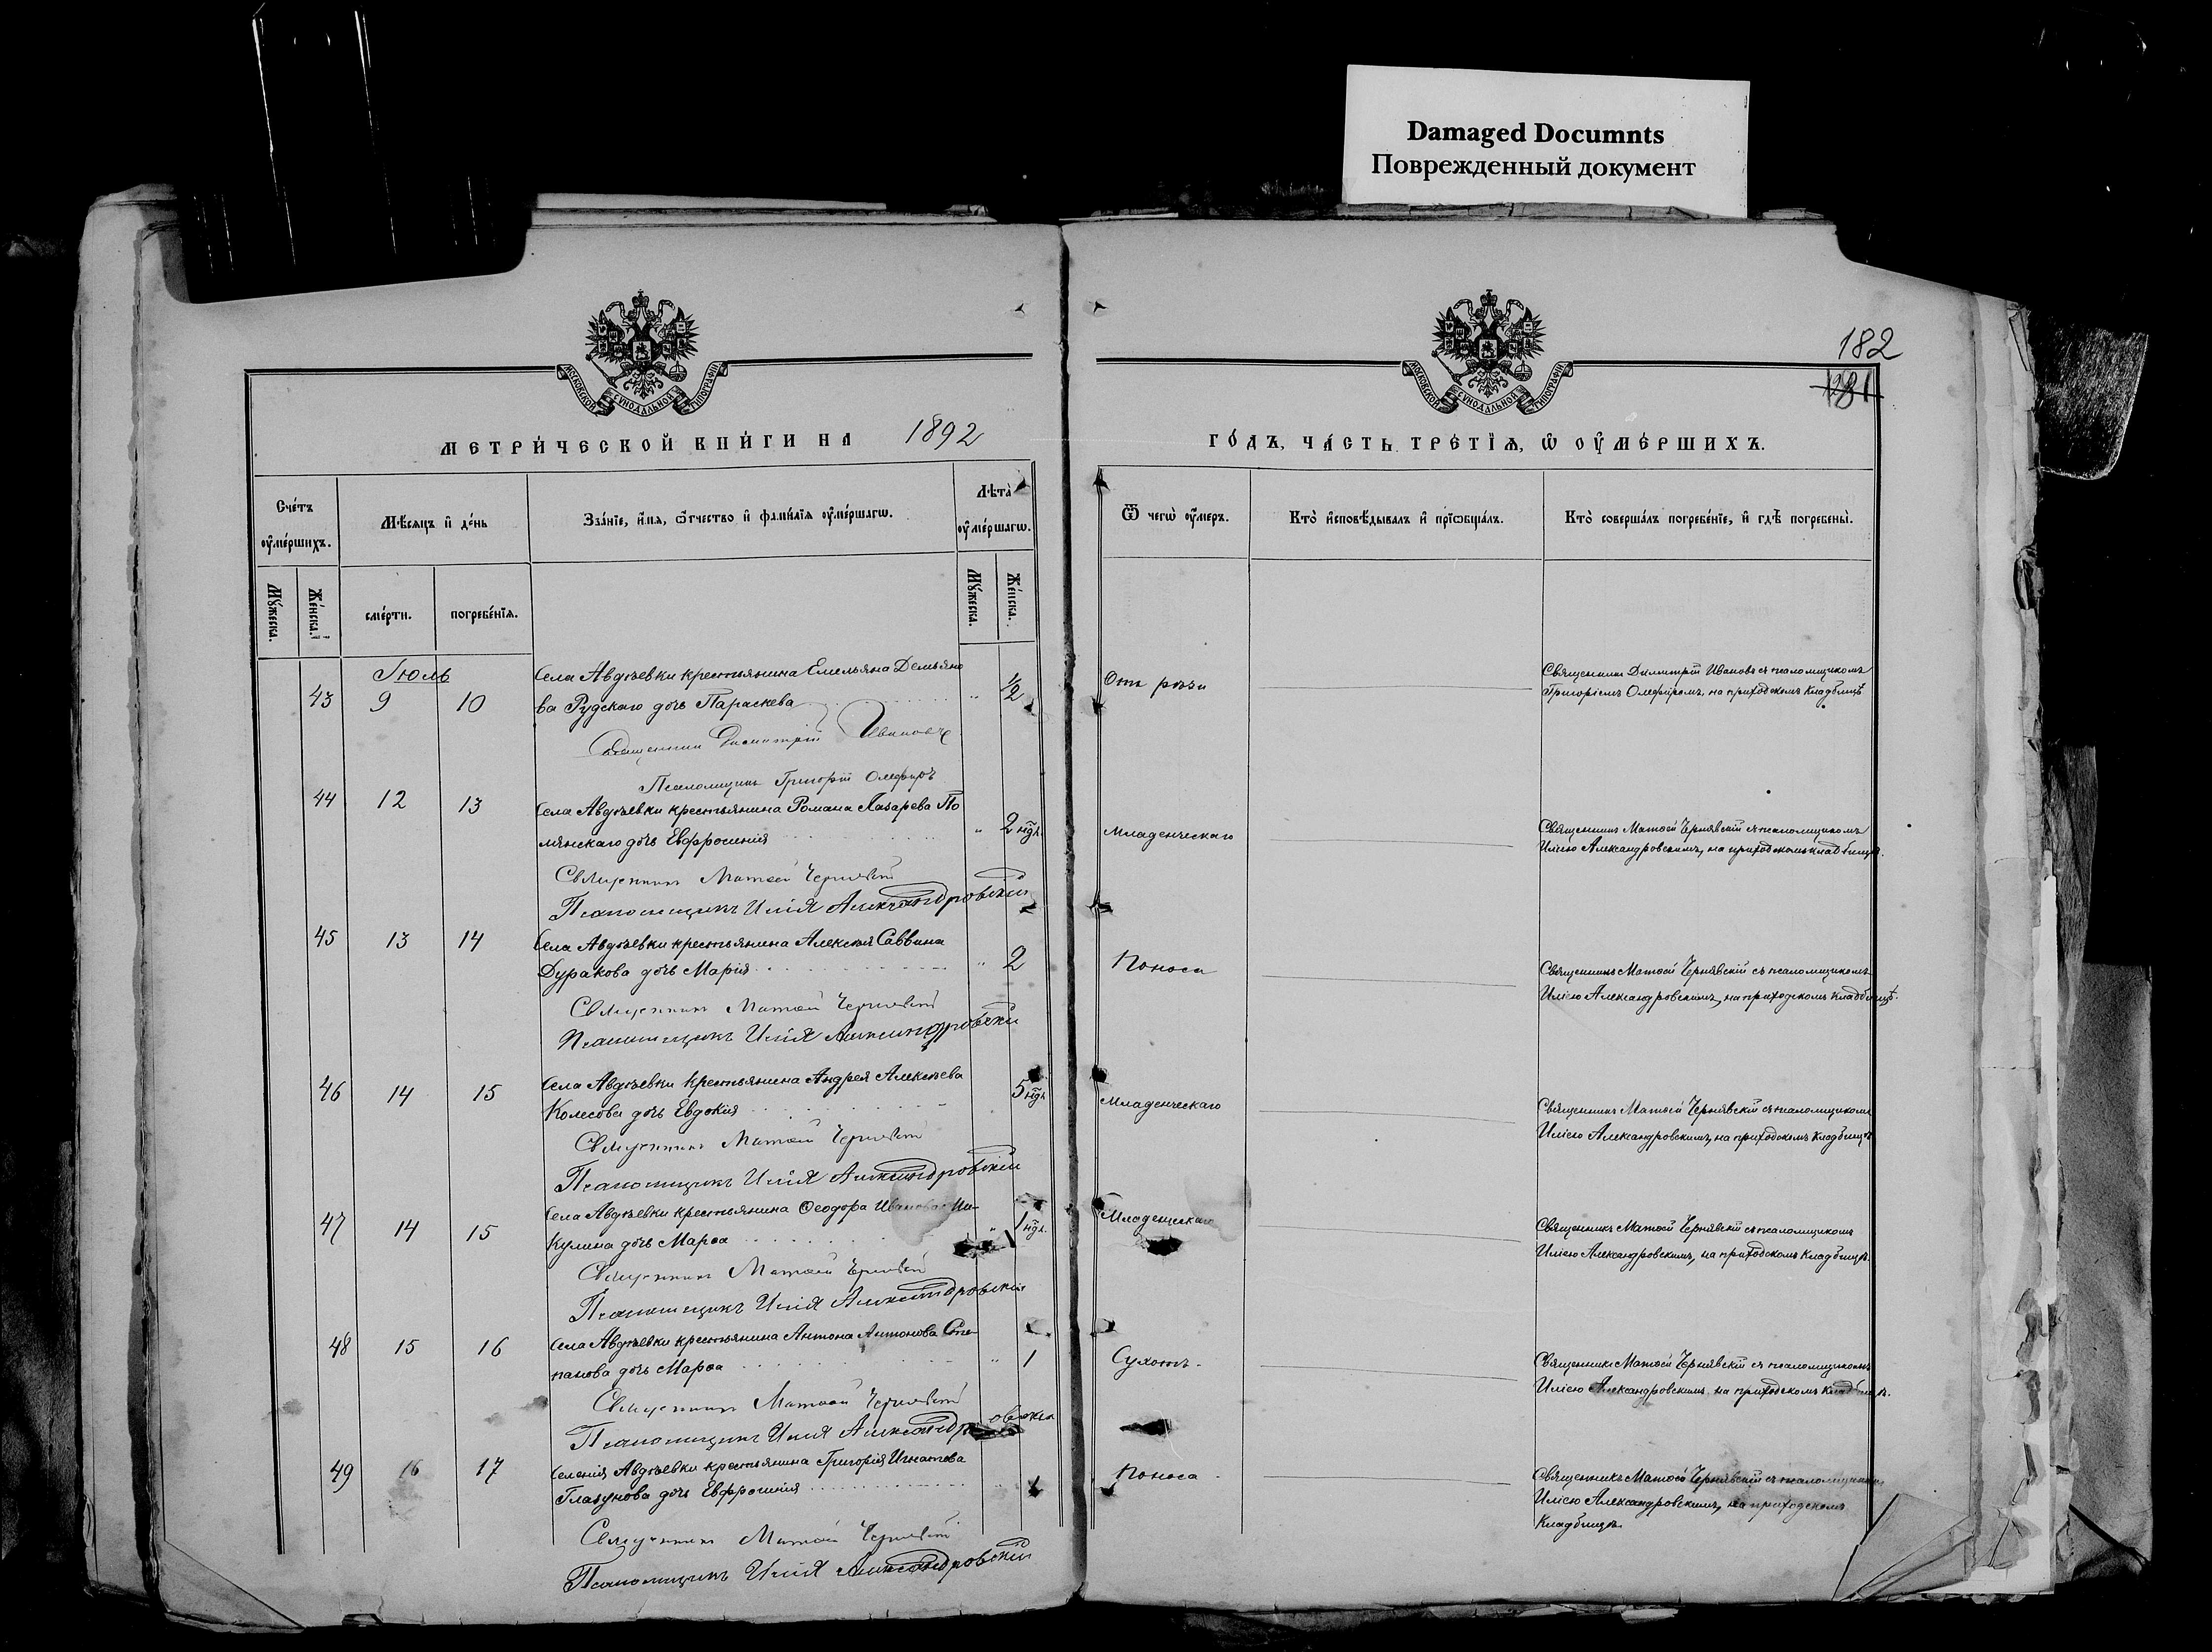 Damaged Documnts
Поврежденный документ
182
181
МОСКОВСКОЙ СѴНОДАЛЬНОЙ ТИПОГРАФІИ
МОСКОВСКОЙ СѴНОДАЛЬНОЙ ТИПОГРАФІИ
МЕТРИ́ЧЕСКОЙ КНИ́ГИ НА 1892
ГО́ДЪ, ЧА́СТЬ ТРЕ́ТІѦ, Ѡ҆ ОУ҆МЕ́РШИХЪ.
Сче́тъ оу҆ме́ршихъ.
Мѣ́сяцъ и҆ де́нь
Зва́нїе, и҆́мя, ѻ҆́тчество и҆ фами́лїя оу҆ме́ршагѡ.
Лѣта̀ оу҆ме́ршагѡ.
Ѿ чегѡ̀ оу҆́меръ.
Кто̀ и҆сповѣ́дывалъ и҆ прїѡбща́лъ.
Кто̀ соверша́лъ погребе́нїе, и҆ гдѣ̀ погребены̀.
Мꙋ́жеска.
Же́нска.
сме́рти.
погребе́нїя.
Мꙋ́жеска.
Же́нска.
Іюль
43 9 10
Села Авдѣевки крестьянина Емельяна Демьяно
ва Рудскаго дочь Параскева " 1/2
Священник Димитрій Ивановъ
Псаломщикъ Григорій Олефиръ
Священникъ Димитрій Ивановъ съ псаломщикомъ
Григоріемъ Олефиромъ, на приходскомъ кладбищѣ
44 12 13
Села Авдѣевки крестьянина Романа Лазарева По
лянскаго дочь Евфросинія " 2 нѣд.
Младенческаго
Священникъ Матѳей Чернявскій
Псаломщикъ Илія Александровскій
Священникъ Матѳей Чернявскій съ псаломщикомъ
Иліею Александровскимъ, на приходскомъ кладбищѣ.
45 13 14
Села Авдѣевки крестьянина Алексѣя Саввина
Дуракова дочь Марія " 2
Поноса
Священникъ Матѳей Чернявскій
Псаломщикъ Илія Александровскій
Священникъ Матѳей Чернявскій съ псаломщикомъ
Иліею Александровскимъ, на приходскомъ кладбищѣ.
46 14 15
Села Авдѣевки крестьянина Андрея Алексѣева
Колесова дочь Евдокія 5 нѣд.
Младенческаго
Священникъ Матѳей Чернявскій
Псаломщикъ Илія Александровскій
Священникъ Матѳей Чернявскій съ псаломщикомъ
Иліею Александровскимъ, на приходскомъ кладбищѣ
47 14 15
Села Авдѣевки крестьянина Ѳеодора Иванова Ни-
кулина дочь Марѳа " 1 нѣд.
Младенческаго
Священникъ Матѳей Чернявскій
Псаломщикъ Илія Александровскій
Священникъ Матѳей Чернявскій съ псаломщикомъ
Иліею Александровскимъ, на приходскомъ кладбищѣ.
48 15 16
Села Авдѣевки крестьянина Антона Антонова Сте-
панова дочь Марѳа " 1
Сухотъ.
Священникъ Матѳей Чернявскій
Псаломщикъ Илія Александровскій
Священникъ Матѳей Чернявскій съ псаломщикомъ
Иліею Александровскимъ, на приходскомъ кладбищѣ.
49 16 17
Селенія Авдѣевки крестьянина Григорія Игнатова
Глазунова дочь Евфросинія " 1
Поноса
Священникъ Матѳей Чернявскій
Псаломщикъ Илія Александровскій
Священникъ Матѳей Чернявскій съ псаломщикомъ
Иліею Александровскимъ, на приходскомъ
кладбищѣ.